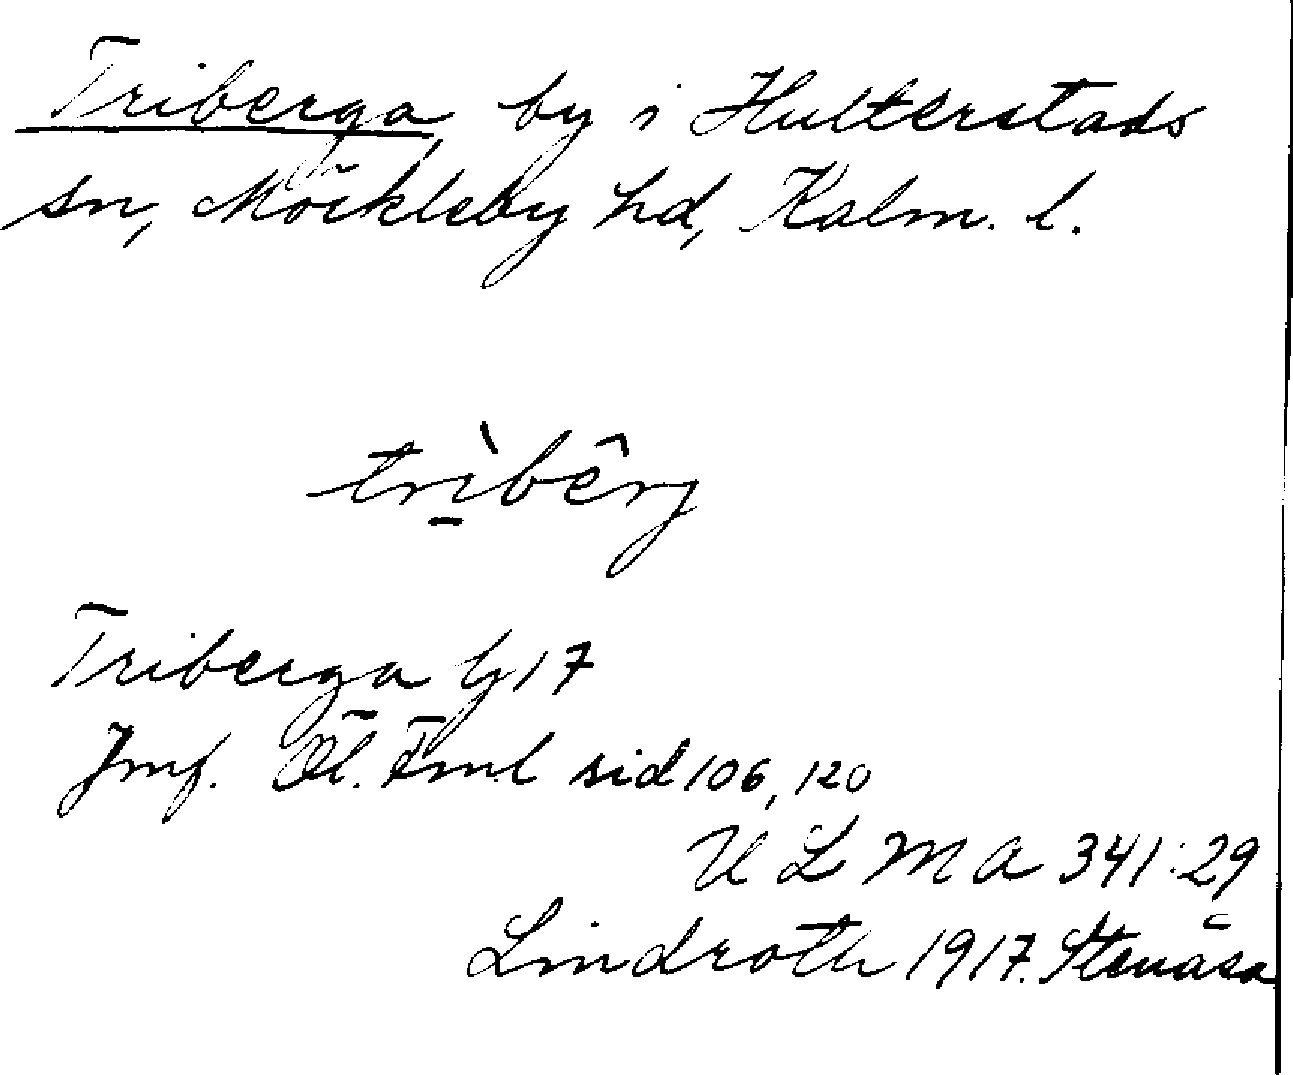 Triberga by i Hulterstads
sn, Möckleby hd, Kalm. l.
trì̠bêrj
Triberga G 17
Jmf. Öl. Fml sid 106, 120
U L M A 341:29
Lindroth 1917. Stenåsa